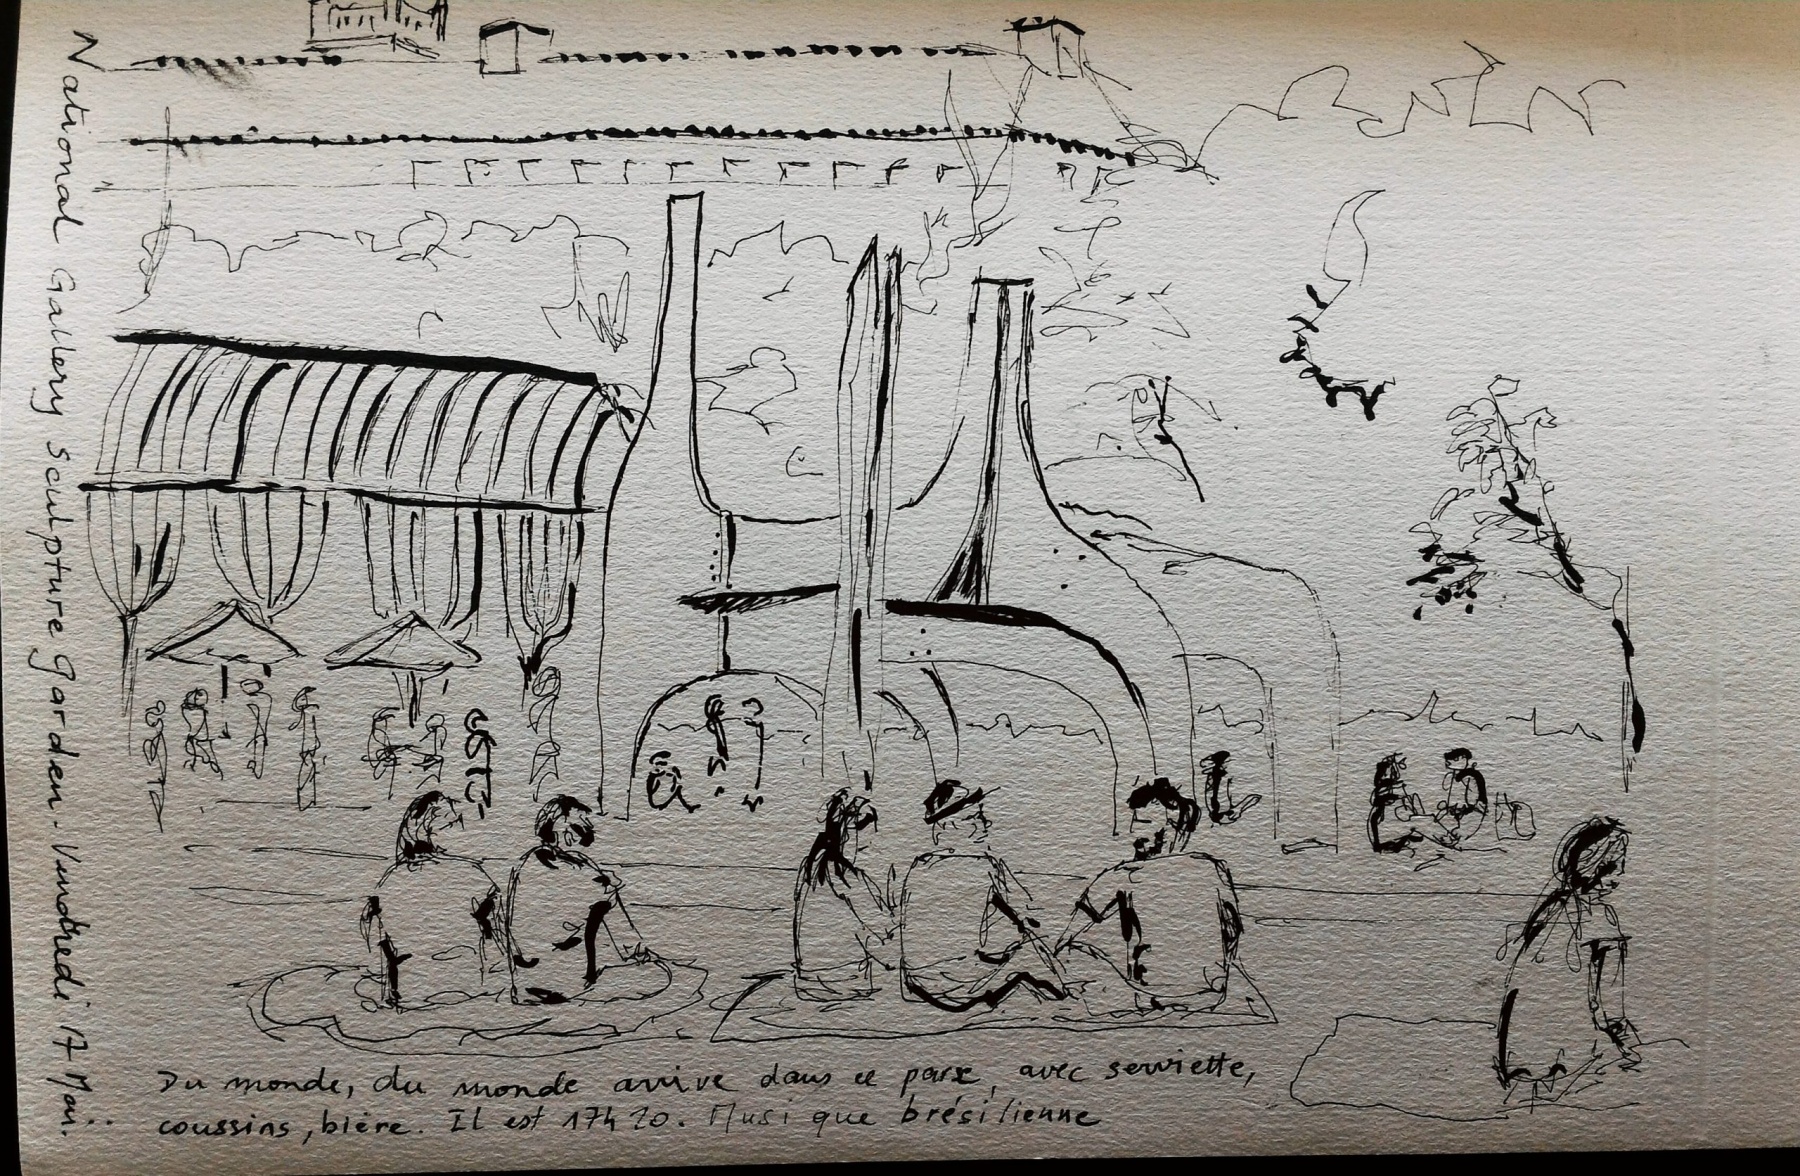 National Gallery Sculpture garden. Vendredi 17 Mai...
Du monde, du monde arrive dans ce parc, avec serviette,
coussins, bière. Il est 17h20. Musique brésilienne